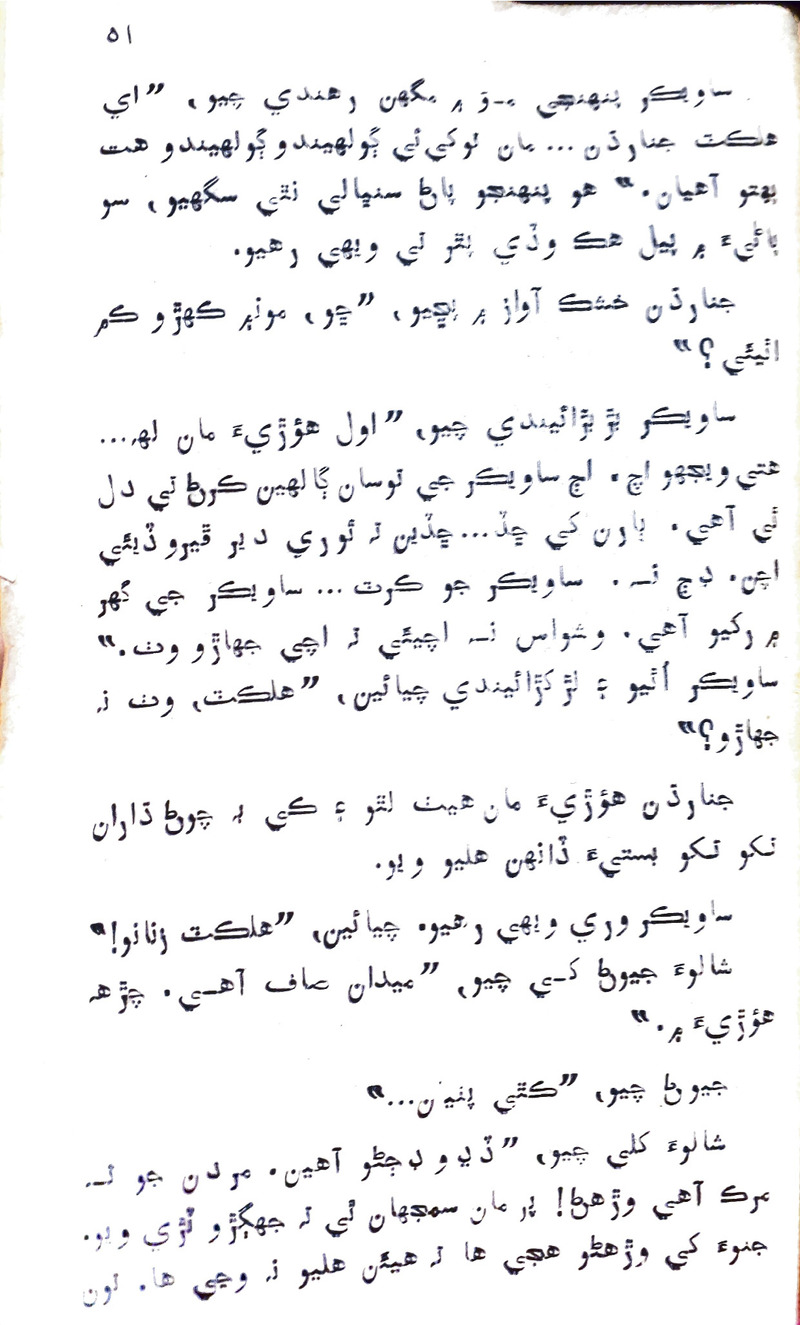 ٥١
ساويڪر پنهنجي ۾ مگهن رهندي چيو، ”اي
هلڪٽ جنارڌن... مان توکي ئي ڳولهيندو ڳولهيندو هت
پهتو آهيان.“ هو پنهنجو پاڻ سنڀالي نٿي سگهيو، سو
پاڻيءَ ۾ پيل هڪ وڏي پٿر تي ويهي رهيو.
جنارڌن خشڪ آواز ۾ پڇيو، ”ڇو، مون۾ ڪهڙو ڪم
اٿيئي؟“
ساويڪر ٻڙ ٻڙائيندي چيو، ”اول هوڙيءَ مان لهه...
هتي ويجهو اچ. اڄ ساويڪر جي توسان ڳالهين ڪرڻ تي دل
ٿي آهي. ٻارن کي ڇڏ...ڇڏين تہ ٿوري دير ڦيرو ڏيئي
اچن. ڊڄ نہ. ساويڪر جو ڪرٽ... ساويڪر جي گهر
۾ رکيو آهي. وشواس نہ اچيئي تہ اچي جهاڙو وٺ.“
ساويڪر اُٿيو ۽ لڙکڙائيندي چيائين، ”هلڪٽ، وٺ نہ
جهاڙو؟“
جنارڌن هوڙيءَ مان هيٺ لٿو ۽ ڪي بہ چوڻ ڌاران
تڪو تڪو بستيءَ ڏانهن هليو ويو.
ساويڪر وري ويهي رهيو. چيائين، ”هلڪٽ زنانو!“
شالوءَ جيوڻ کي چيو، ”ميدان صاف آهي. چڙهه
هوڙيءَ ۾.“
جيوڻ چيو، ”ڪٿي پنين...“
شالوءَ کلي چيو، ”ڏيڍو ڊڄڻو آهين. مردن جو تہ
مرڪ آهي وڙهڻ! پر مان سمجهان ٿي تہ جهڳڙو ٽڙي ويو.
جنوءَ کي وڙهڻو هجي ها تہ هيئن هليو نہ وڃي ها. تون